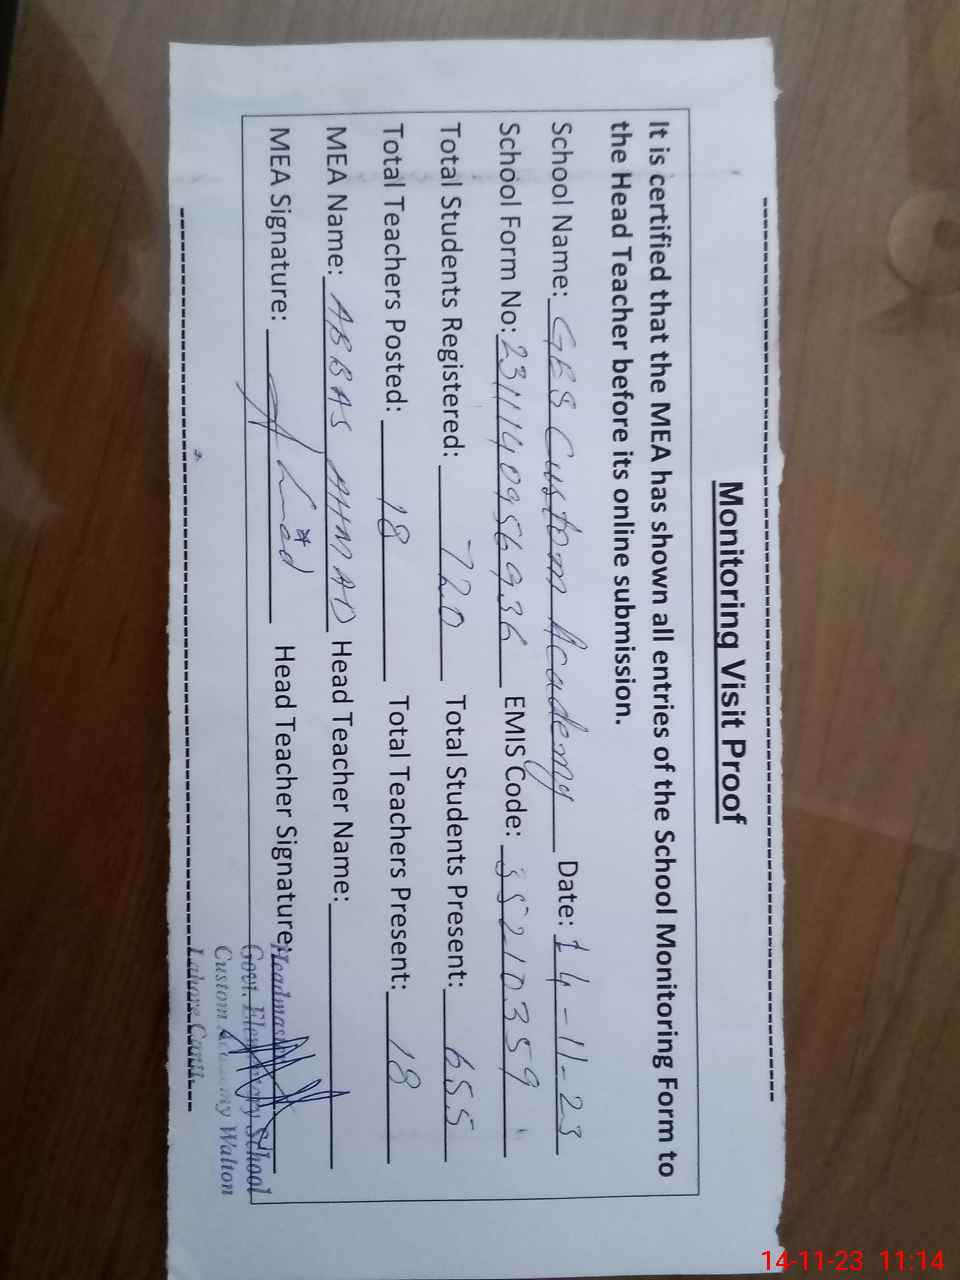 Monitoring Visit Proof
It is certified that the MEA has shown all entries of the School Monitoring Form to
the Head Teacher before its online submission.
School Name: GES Custom Academy Date: 14-11-23
School Form No: 2311140956936 EMIS Code: 35210359
Total Students Registered: 720 Total Students Present: 655
Total Teachers Posted: 18 Total Teachers Present: 18
MEA Name: ABBAS AHMAD Head Teacher Name:
MEA Signature: Head Teacher Signature:
Headmaster
Govt. Elementary School
Custom Academy Walton
Lahore Cantt.
14-11-23 11:14